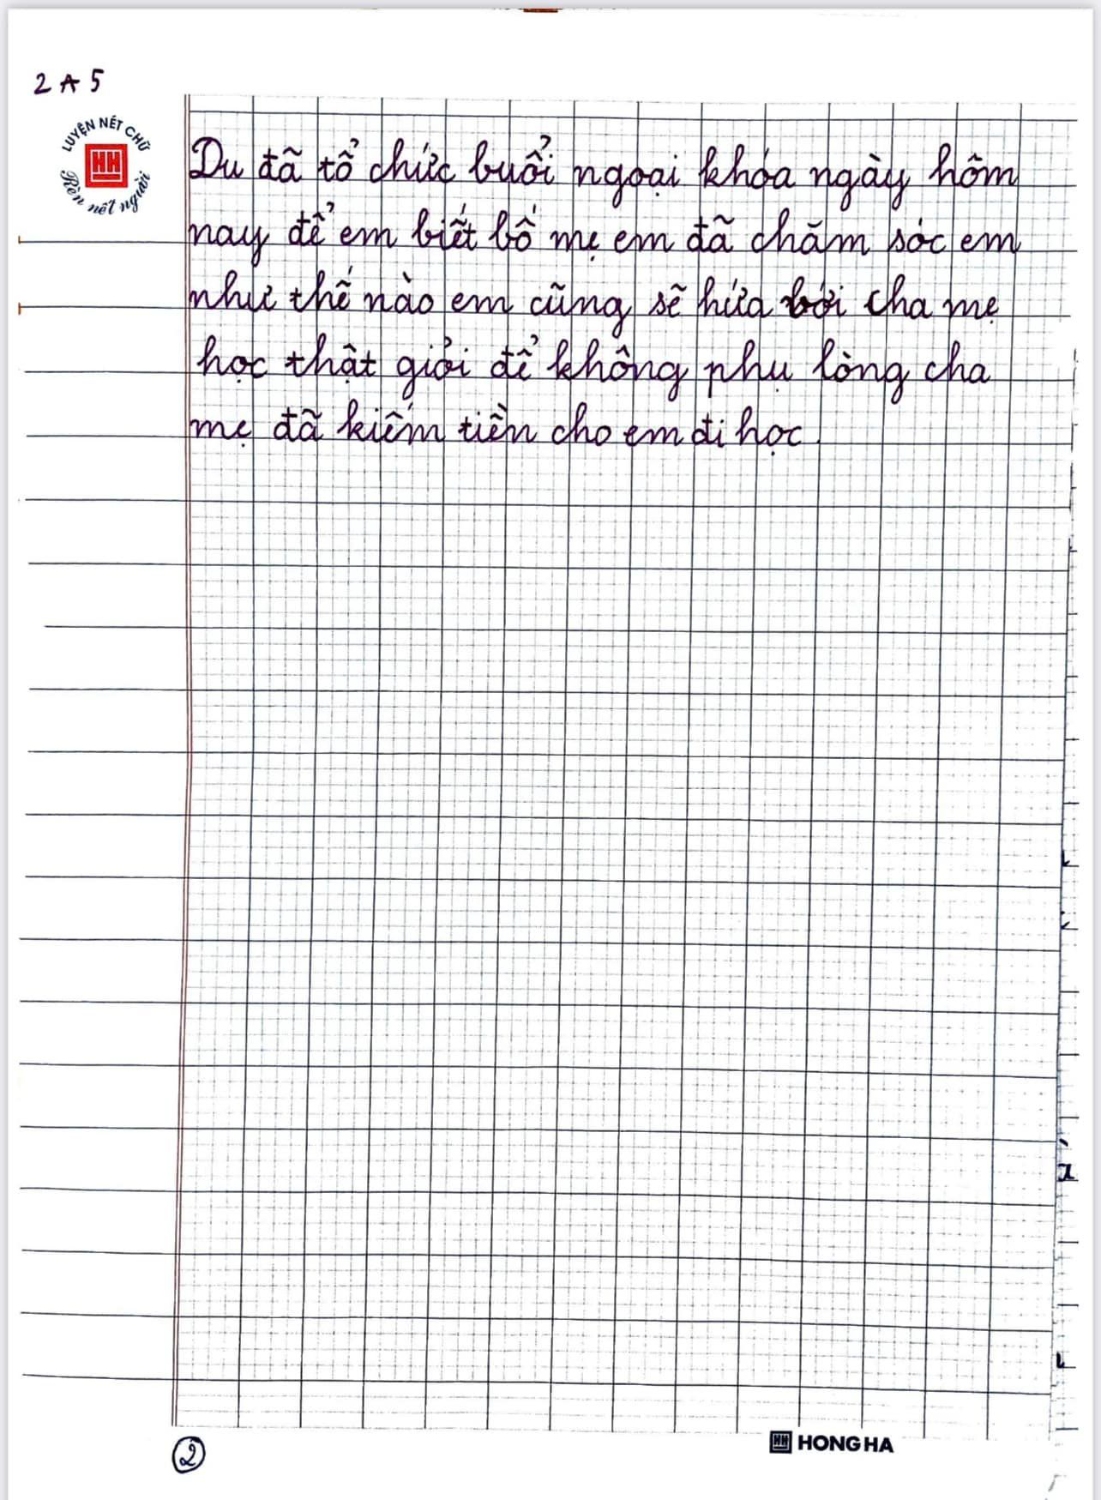 2A5
LUYỆN NÉT CHỮ
HH
Rèn nết người
Du đã tổ chức buổi ngoại khóa ngày hôm
nay để em biết bố mẹ em đã chăm sóc em
như thế nào em cũng sẽ hứa với cha mẹ
học thật giỏi để không phụ lòng cha
mẹ đã kiếm tiền cho em đi học.
2
HH HONG HA